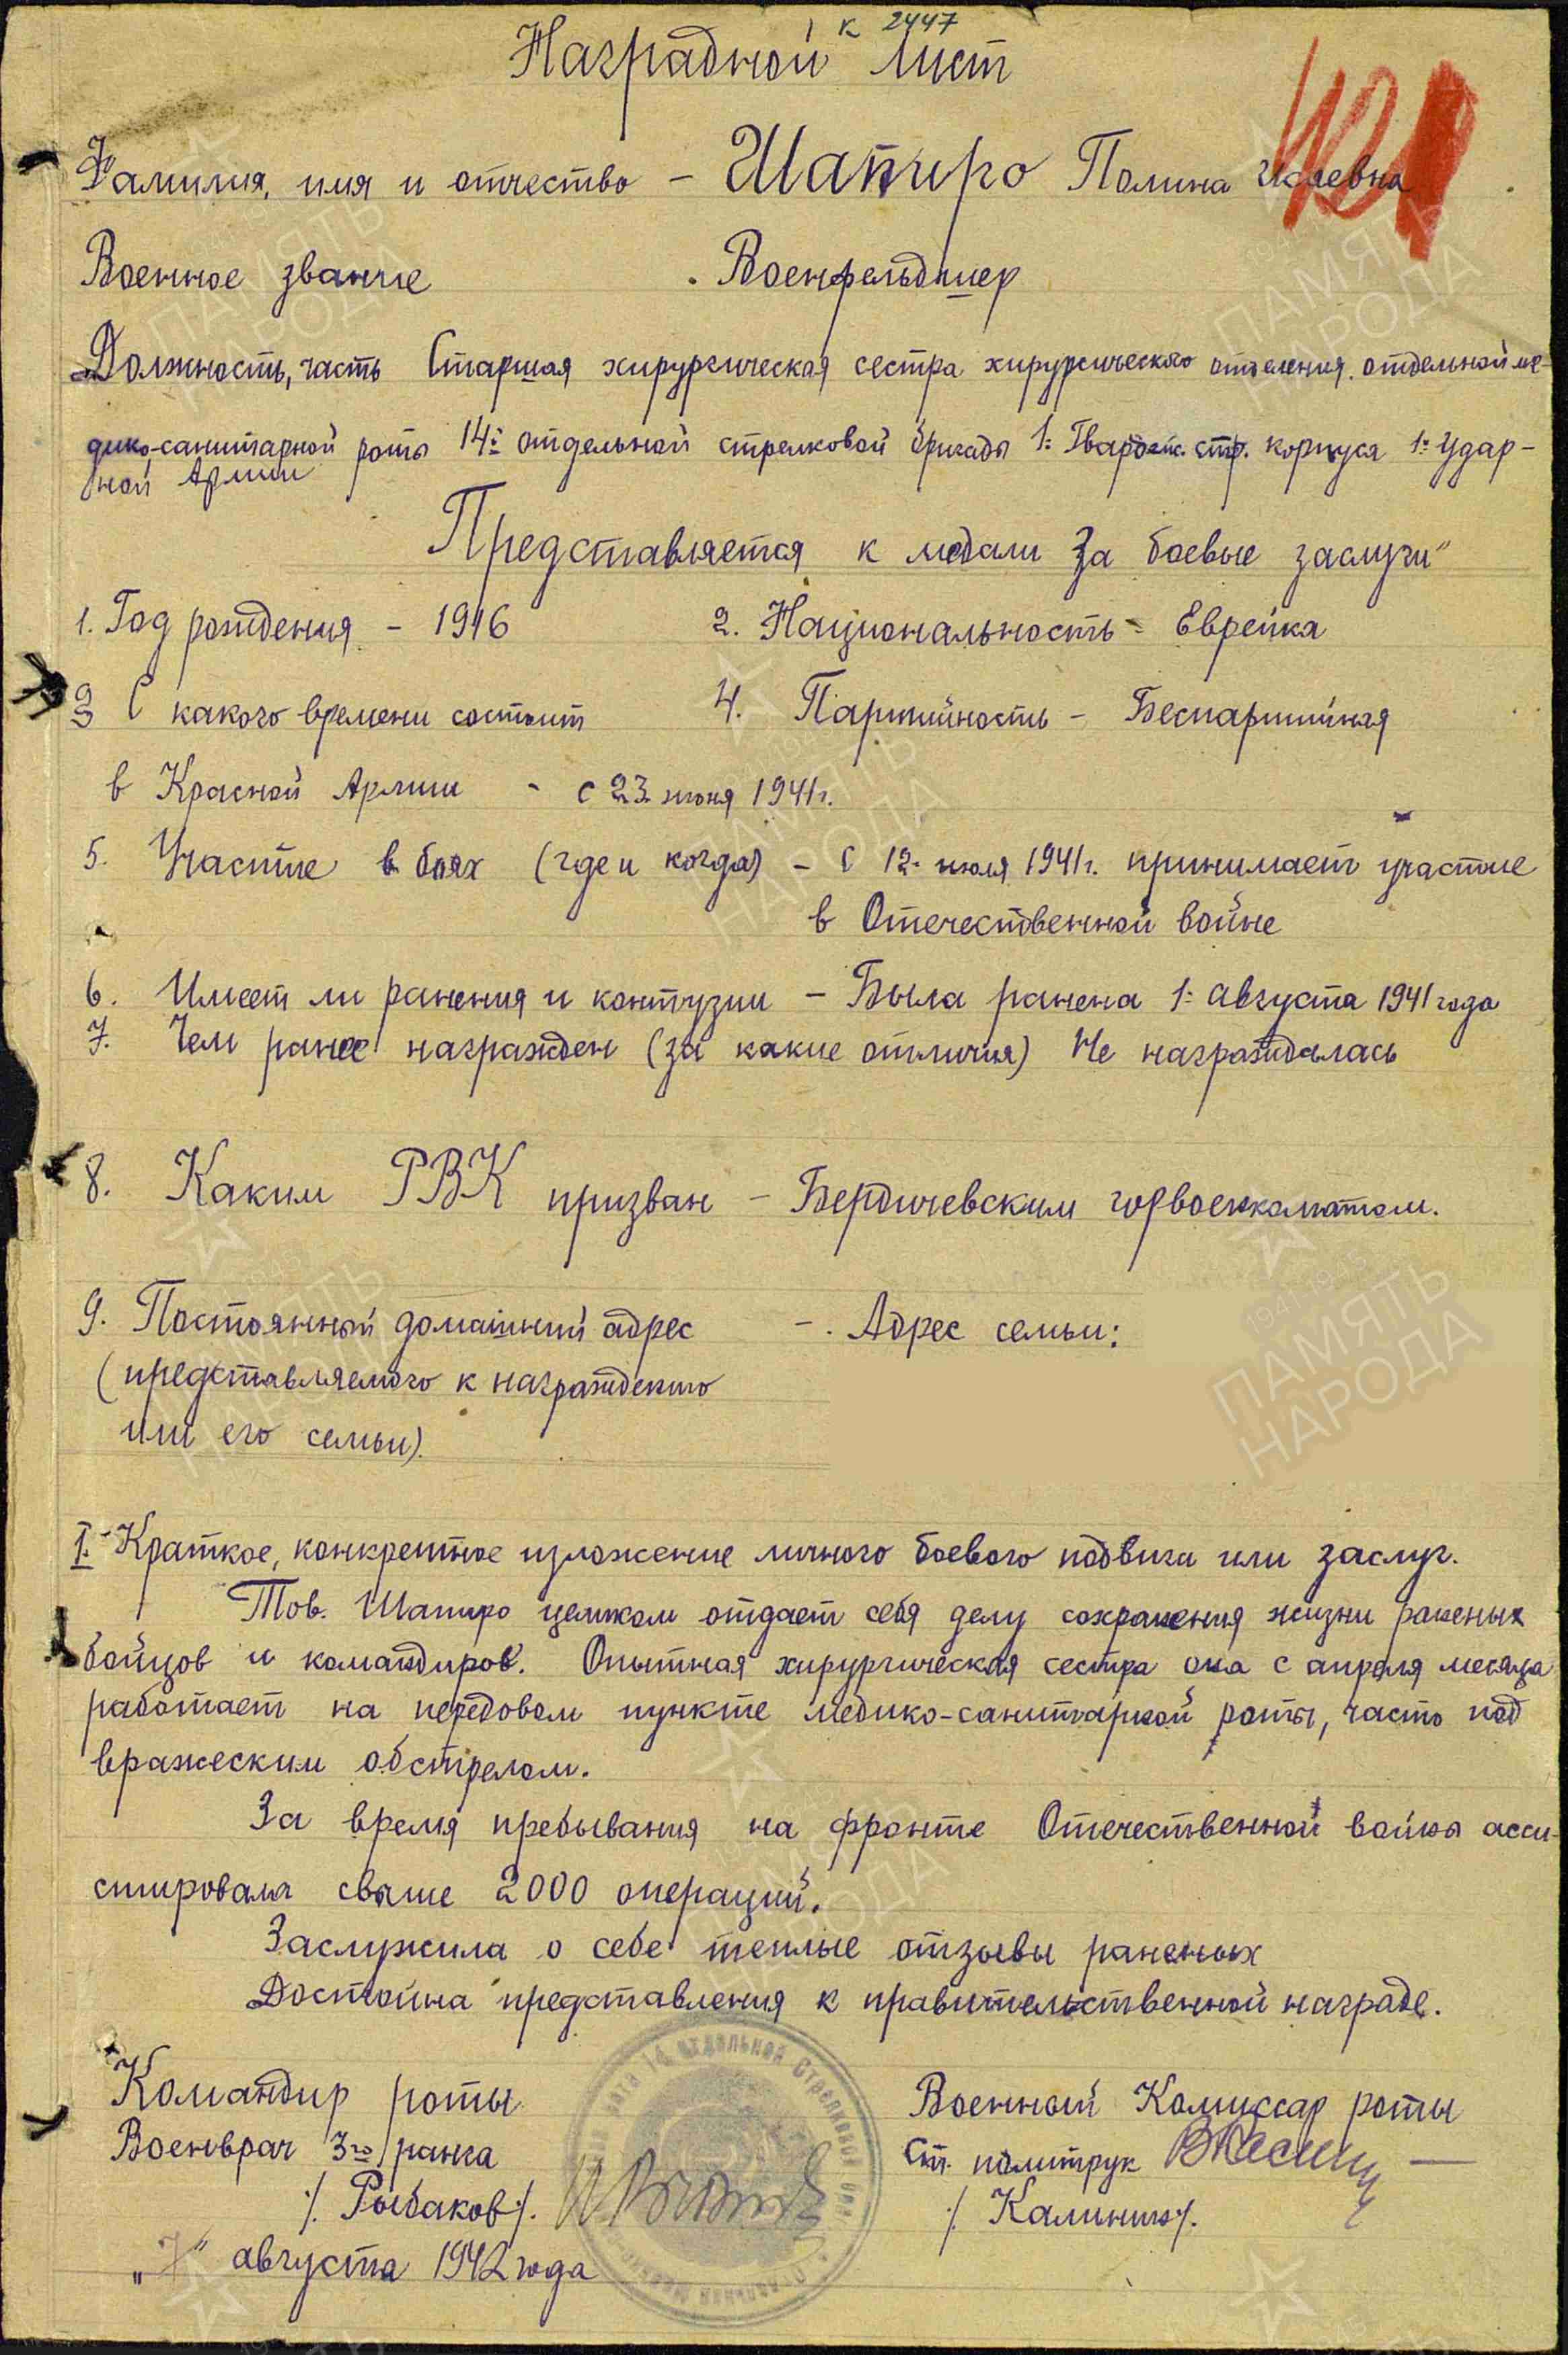 к 2447
Наградной лист
Фамилия, имя и отчество – Шапиро Полина Исаевна
Военное звание . Военфельдшер
Должность, часть Старшая хирургическая сестра хирургического отделения. отдельной ме-
дико-санитарной роты 14й отдельной стрелковой бригады 1: Гвардейс. стр. корпуса 1: Удар-
ной Армии
Представляется к медали За боевые заслуги"
1. Год рождения – 1916 2. Национальность – Еврейка
3 С какого времени состоит 4. Партийность – Беспартийная
в Красной Армии - с 23 июня 1941г.
5. Участие в боях (где и когда) – С 12. июля 1941г. принимает участие
в Отечественной войне
6. Имеет ли ранения и контузии – Была ранена 1: августа 1941 года
7. Чем ранее награжден (за какие отличия) Не награждалась
8. Каким РВК призван – Бердичевским горвоенкоматом.
9. Постоянный домашний адрес –. Адрес семьи:
(представляемого к награждению
или его семьи).
I. Краткое, конкретное изложение личного боевого подвига или заслуг.
Тов. Шапиро целиком отдает себя делу сохранения жизни раненых
бойцов и командиров. Опытная хирургическая сестра она с апреля месяца
работает на передовом пункте медико-санитарной роты, часто под
вражеским обстрелом.
За время пребывания на фронте Отечественной войны асси-
стировала свыше 2000 операций.
Заслужила о себе теплые отзывы раненых
Достойна представления к правительственной награде.
Командир роты
Военврач 3го ранга
/. Рыбаков ./.
„7" августа 1942 года
Военный Комиссар роты
Ст. политрук
/. Калинин ./.
рота 14 отдельной Стрелковой
ПАМЯТЬ
НАРОДА